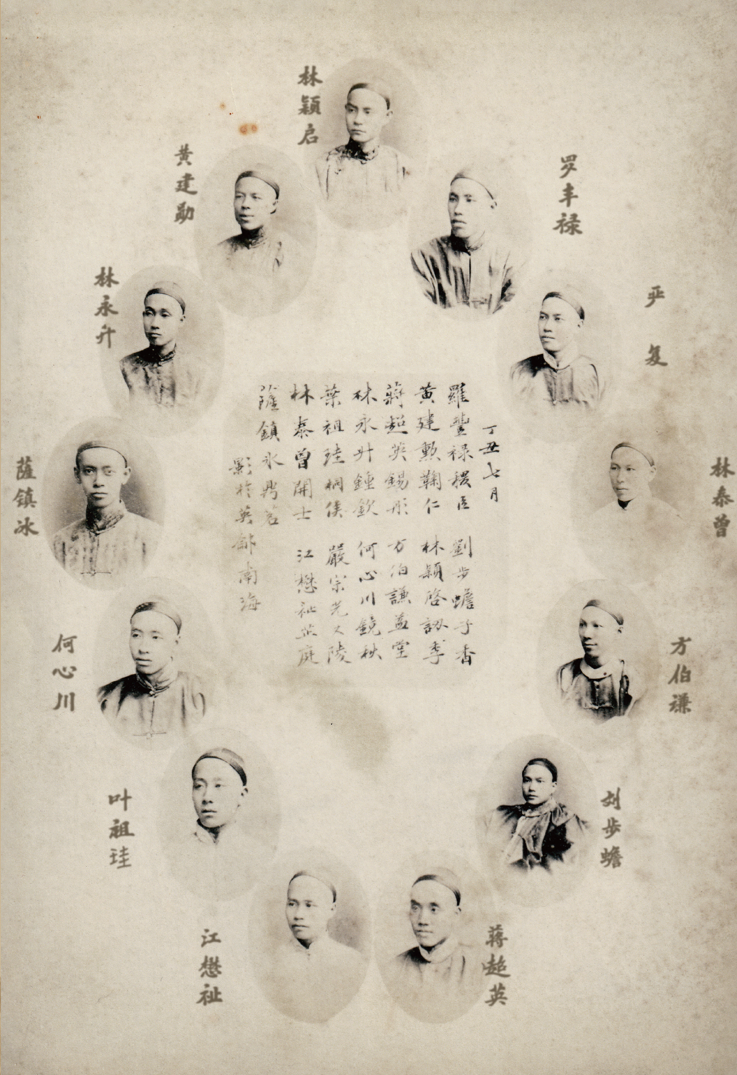 林穎启
黃建勋
罗丰禄
林永升
严复
薩鎮冰
林泰曾
丁丑七月
羅豐祿稷臣 劉步蟾子香
黃建勳鞠仁 林穎啓訒季
蔣超英錫彤 方伯謙益堂
林永升鍾欽 何心川鏡秋
葉祖珪桐侯 嚴宗光又陵
林泰曾開士 江懋祉燕庭
薩鎮氷鼎茗
影於英都南海
何心川
方伯谦
叶祖珪
刘步蟾
江懋祉
蒋超英